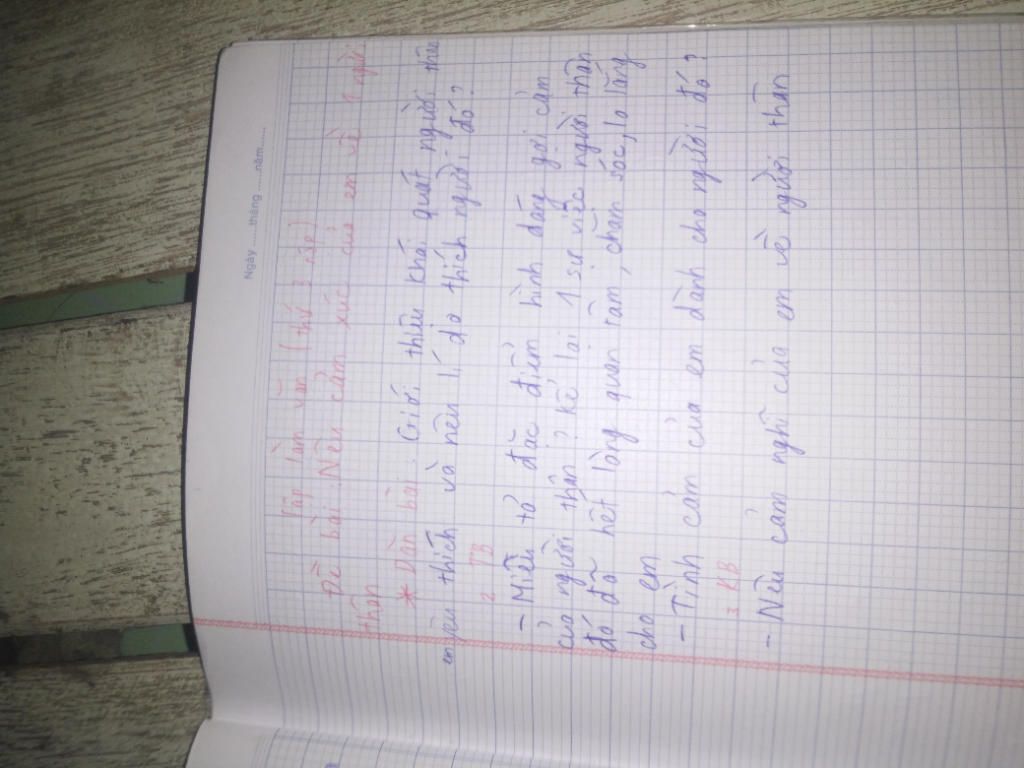 Ngày ..... tháng ..... năm .....
Tập làm văn (thứ 3
Đề bài: Nêu cảm xúc của em về 1 người
thân
* Dàn bài: Giới thiệu khái quát người thân
em yêu thích và nêu lí do thích người đó?
2 TB
- Miêu tả đặc điểm hình dáng gợi cảm
của người thân? kể lại 1 sự việc người thân
đó đã hết lòng quan tâm, chăm sóc, lo lắng
cho em
- Tình cảm của em dành cho người đó?
3 KB
- Nêu cảm nghĩ của em về người thân